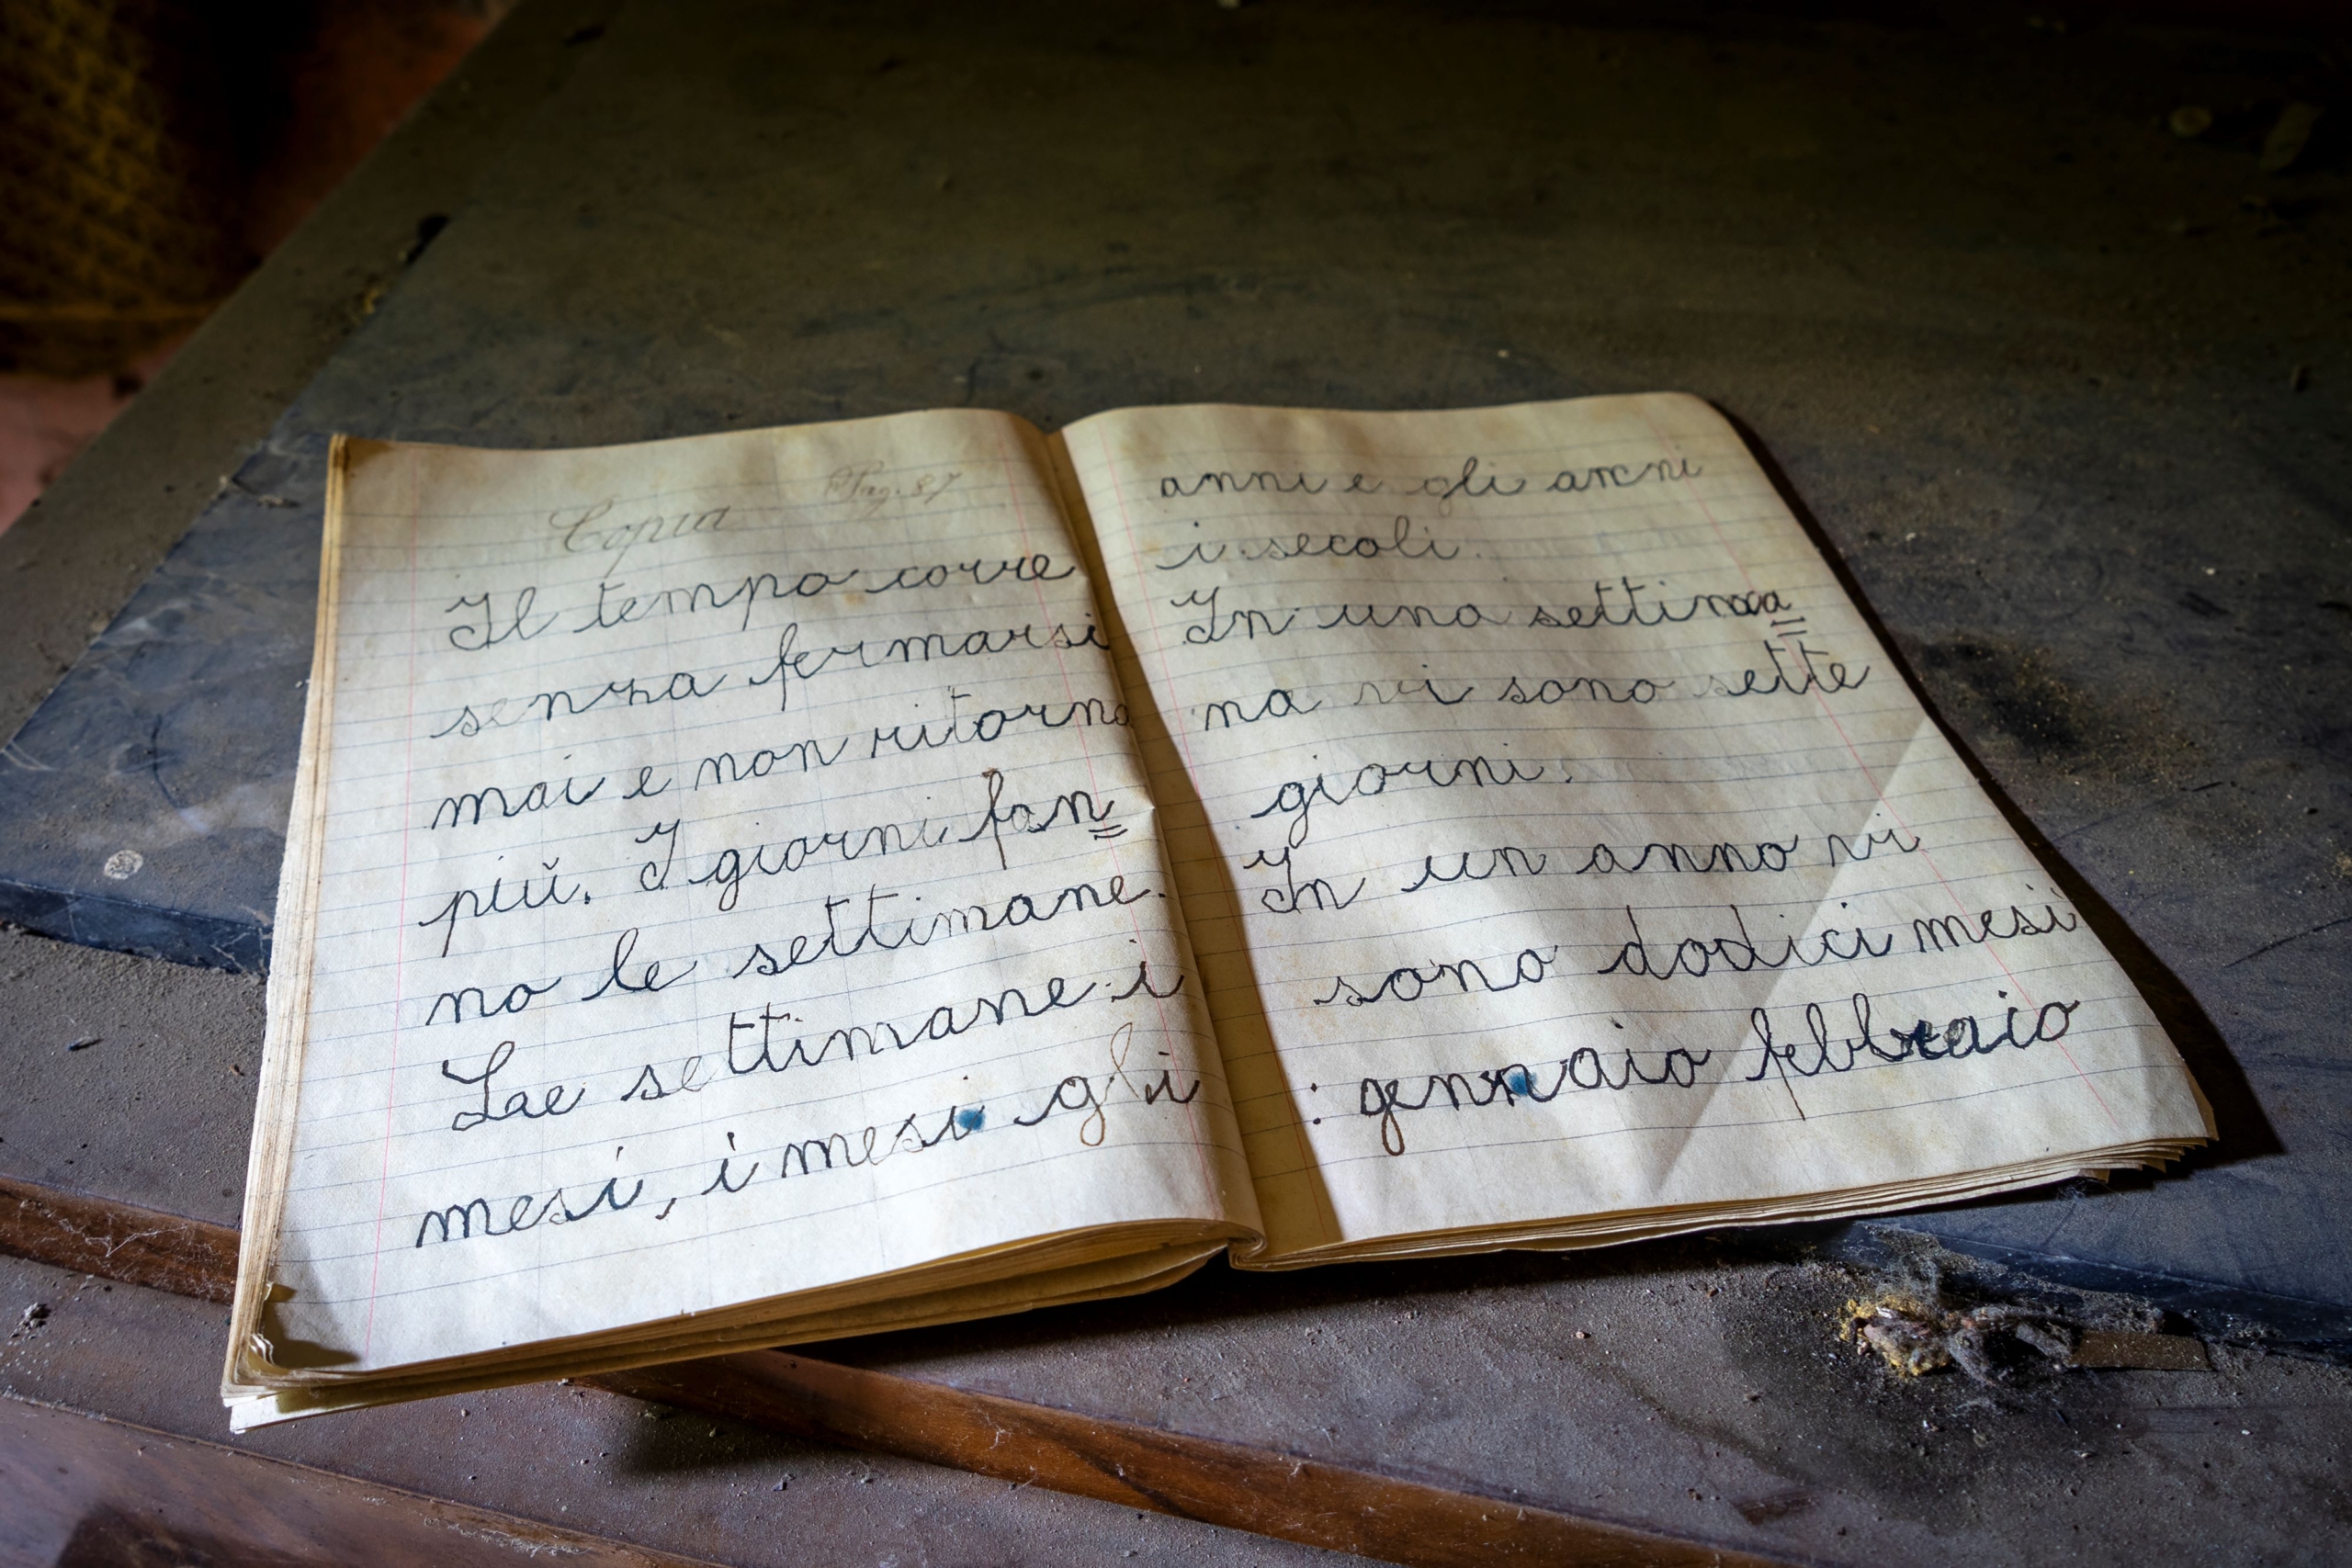 Copia Pag. 87
Il tempo corre
senza fermarsi
mai e non ritorna
più. I giorni fan=
no le settimane.
Lae settimane i
mesi, i mesi gli
anni e gli anni
i secoli.
In una settima=
na vi sono sette
giorni.
In un anno vi
sono dodici mesi
: gennaio febbraio